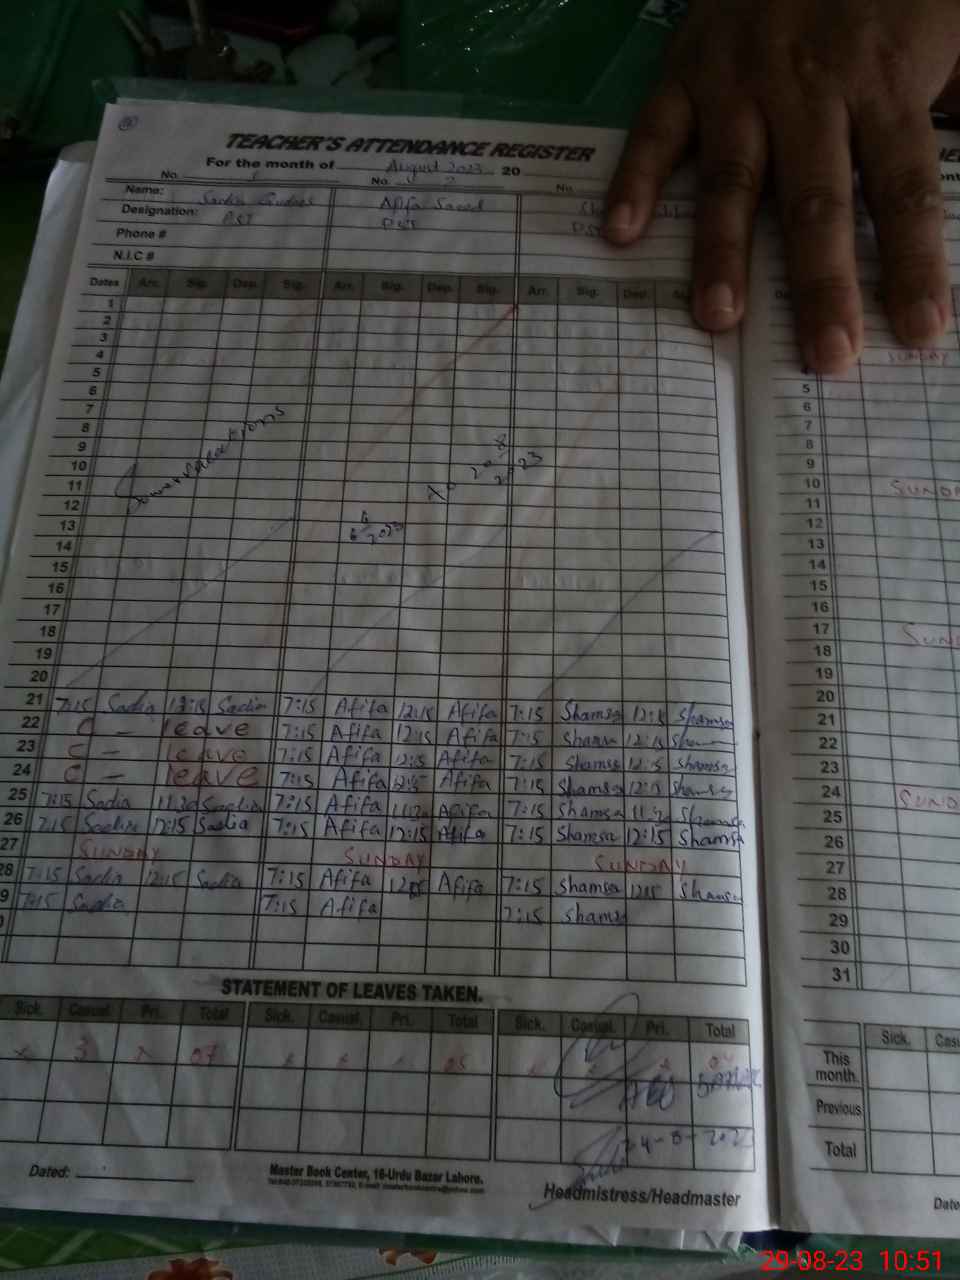 TEACHER'S ATTENDANCE REGISTER
For the month of August 2023 20
No. 1 No. 2 No.
Name: Sadia Afifa Saeed
Designation: PST PST PST
Phone #
N.I.C #
Dates Arr. Sig. Dep. Sig. Arr. Sig. Dep. Sig. Arr. Sig. Dep.
1
2
3
4
5
6
7
8
9
10
11
12
13
14
15
16
17
18
19
20
Summer vacations 6 6 2023 To 20 8 2023
21 7:15 Sadia 12:15 Sadia 7:15 Afifa 12:15 Afifa 7:15 Shamsa 12:15 Shamsa
22 C - leave 7:15 Afifa 12:15 Afifa 7:15 Shamsa 12:15 Shamsa
23 C - leave 7:15 Afifa 12:15 Afifa 7:15 Shamsa 12:15 Shamsa
24 C - leave 7:15 Afifa 12:15 Afifa 7:15 Shamsa 12:15 Shamsa
25 7:15 Sadia 11:30 Sadia 7:15 Afifa 11:30 Afifa 7:15 Shamsa 11:30 Shamsa
26 7:15 Sadia 12:15 Sadia 7:15 Afifa 12:15 Afifa 7:15 Shamsa 12:15 Shamsa
27 SUNDAY SUNDAY SUNDAY
28 7:15 Sadia 12:15 Sadia 7:15 Afifa 12:15 Afifa 7:15 Shamsa 12:15 Shamsa
9 7:15 Sadia 7:15 Afifa 7:15 Shamsa
0
STATEMENT OF LEAVES TAKEN.
Sick. Casual. Pri. Total Sick. Casual. Pri. Total Sick. Casual. Pri. Total
x 3 x 07 x x x 05 x x x 04
Dated:
Master Book Center, 16-Urdu Bazar Lahore.
Headmistress/Headmaster
SUNDAY
5
6
7
8
9
10 SUND
11
12
13
14
15
16
17 SUND
18
19
20
21
22
23
24 SUND
25
26
27
28
29
30
31
Sick. Cas
This month.
Previous
Total
Date
29-08-23 10:51